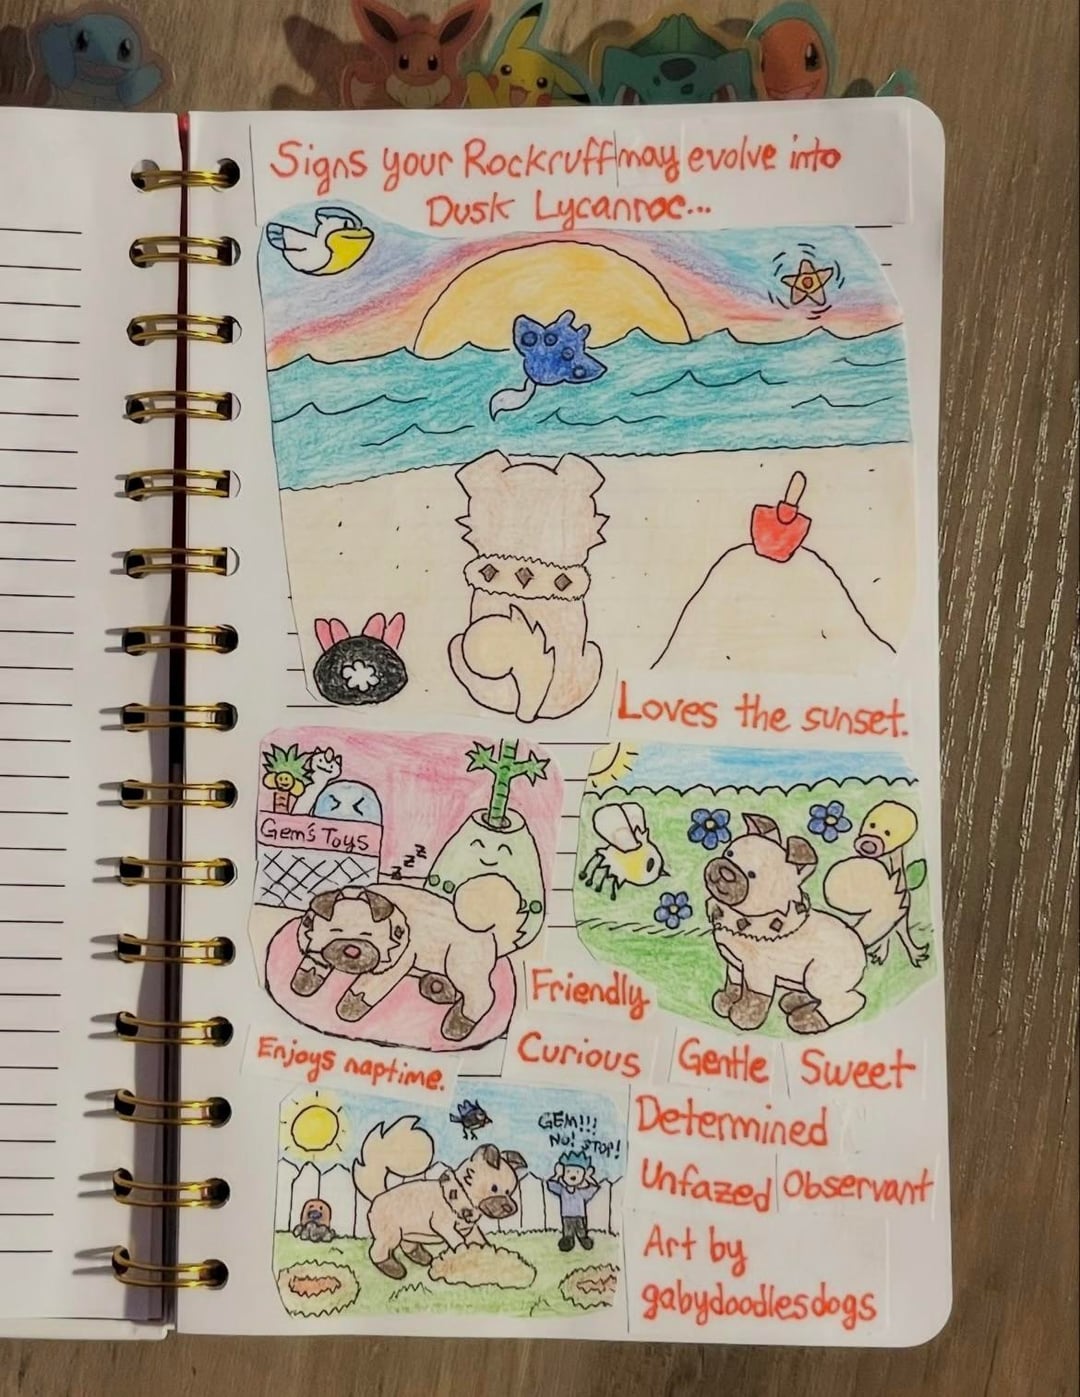 Signs your Rockruff may evolve into
Dusk Lycanroc...
Loves the sunset.
Gem's Toys
z z z
Friendly
Enjoys naptime.
Curious Gentle Sweet
GEM!!!
NO! STOP!
Determined
Unfazed Observant
Art by
gabydoodlesdogs